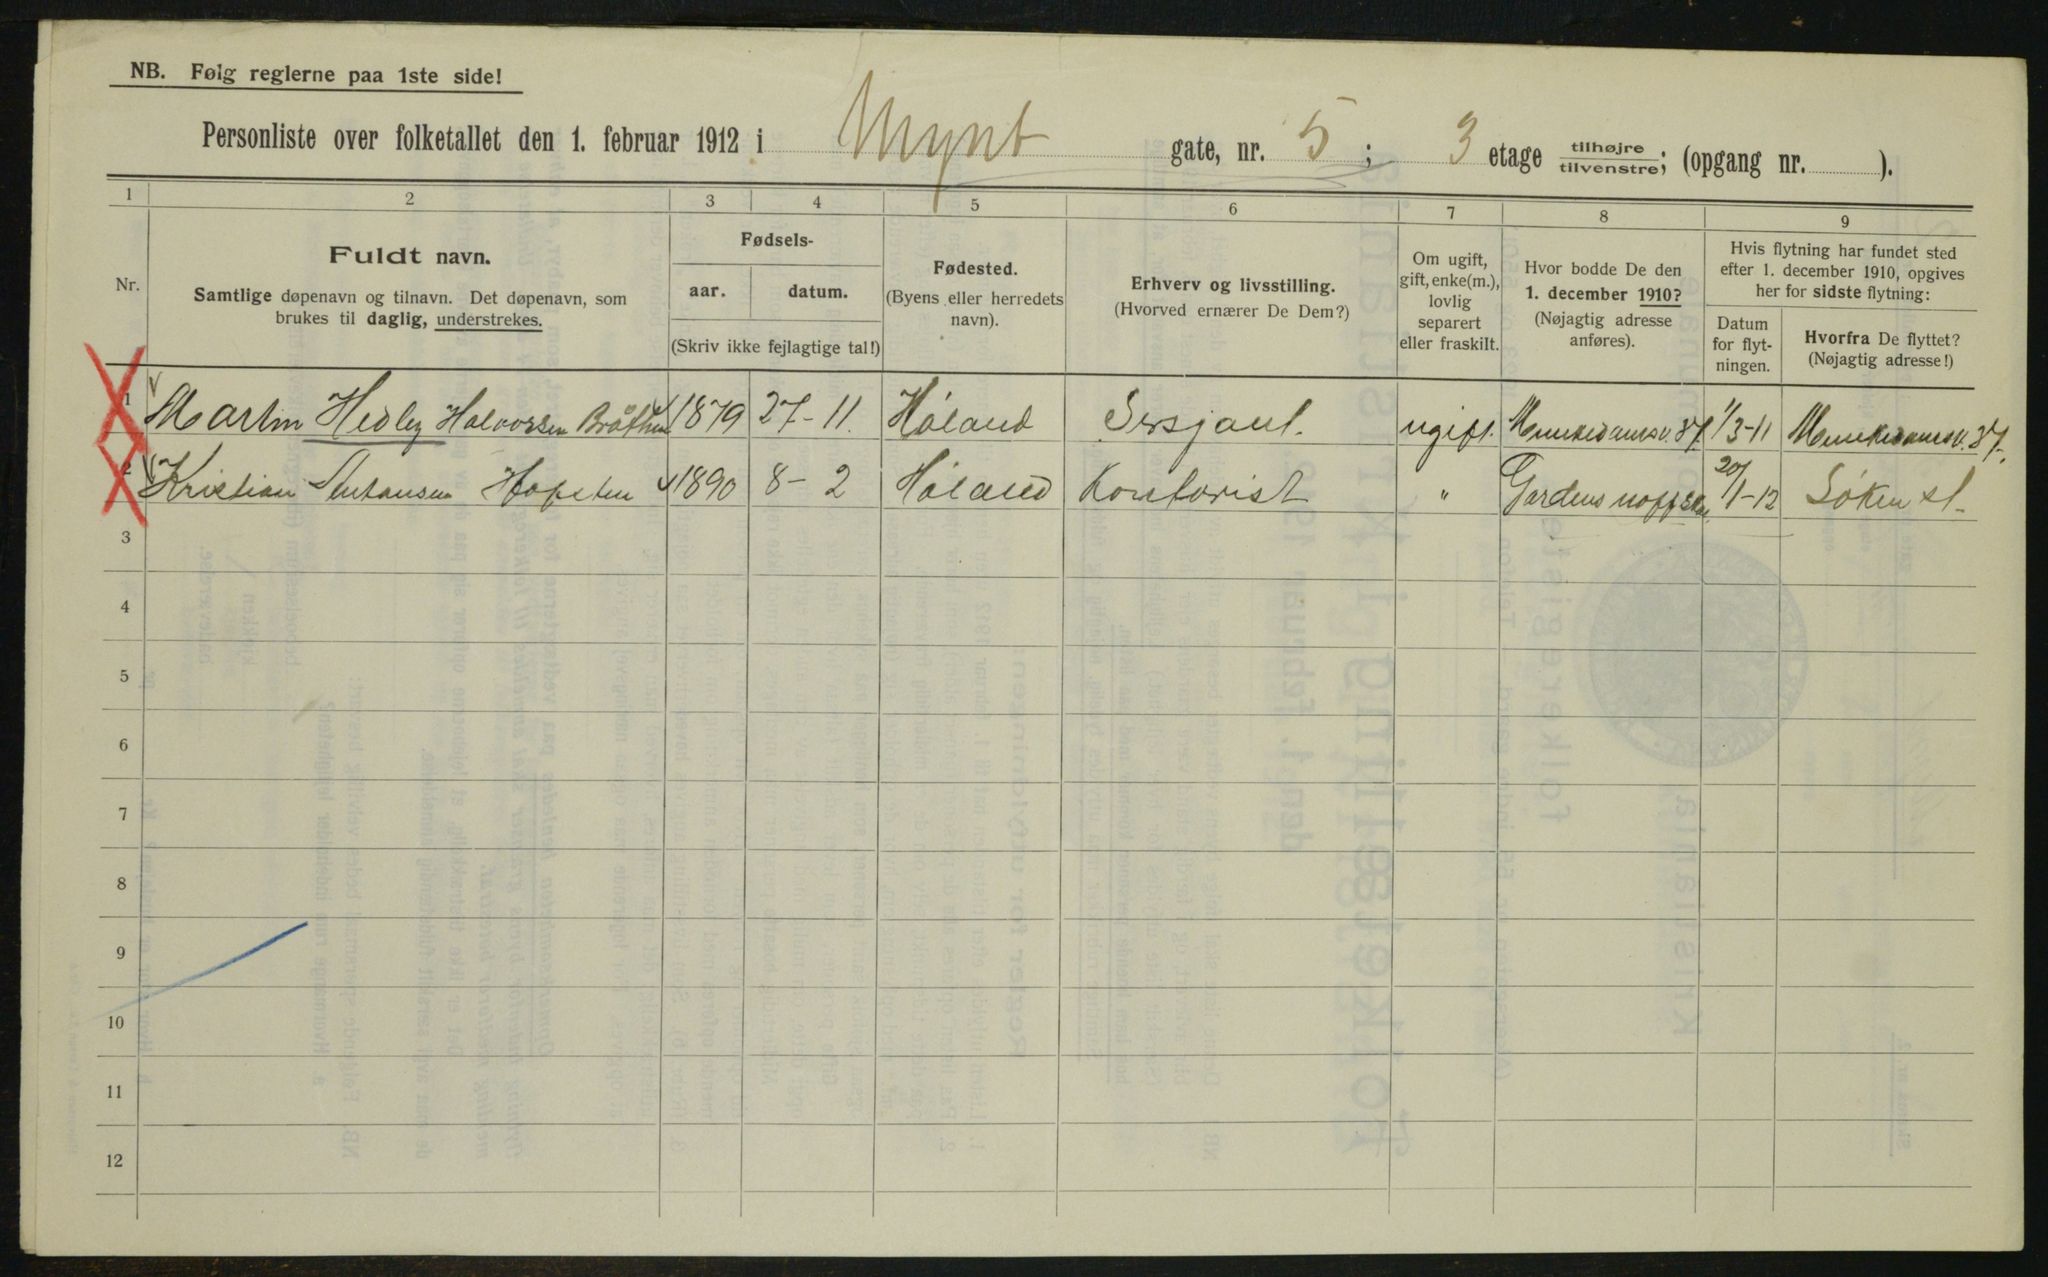 NB. Følg reglerne paa 1ste side!
Personliste over folketallet den 1. februar 1912 i Mynt gate, nr. 5; 3 etage tilhøjre/tilvenstre; (opgang nr. ).
1 2 3 4 5 6 7 8 9
Nr.
Fuldt navn.
Samtlige døpenavn og tilnavn. Det døpenavn, som
brukes til daglig, understrekes.
Fødsels-
aar. datum.
(Skriv ikke fejlagtige tal!)
Fødested.
(Byens eller herredets
navn).
Erhverv og livsstilling.
(Hvorved ernærer De Dem?)
Om ugift,
gift, enke(m.),
lovlig
separert
eller fraskilt.
Hvor bodde De den
1. december 1910?
(Nøjagtig adresse
anføres).
Hvis flytning har fundet sted
efter 1. december 1910, opgives
her for sidste flytning:
Datum
for flyt-
ningen.
Hvorfra De flyttet?
(Nøjagtig adresse!)
1 Martin Hedley Halvorsen Bråthen 1879 27-11. Høland Sersjant. ugift. Munkedamsv. 37. 1/3-11 Munkedamsv. 37.
2 Kristian Antonsen Hofsten 1890 8-2 Høland Kontorist " Gardens 20/1-12 Løken st.
3
4
5
6
7
8
9
10
11
12